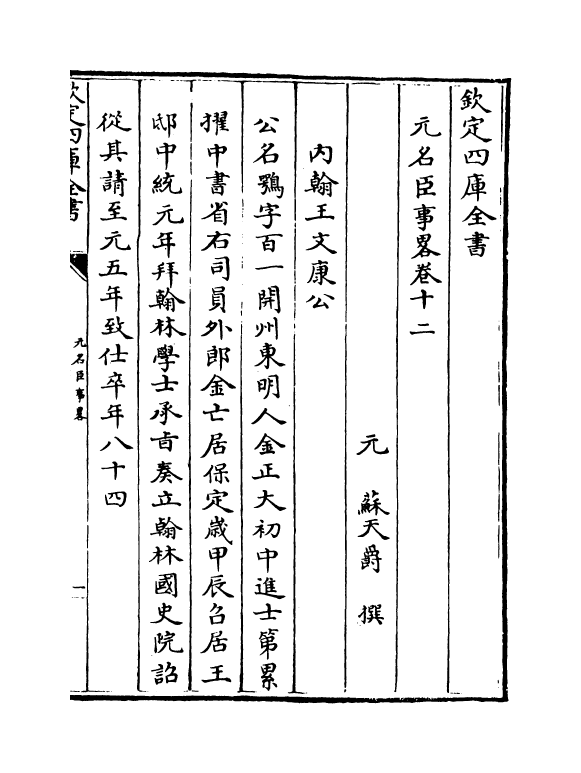 欽定四庫全書
元名臣事畧卷十二
元 蘇天爵 撰
內翰王文康公
公名鶚字百一開州東明人金正大初中進士第累
擢中書省右司員外郎金亡居保定歲甲辰召居王
邸中統元年拜翰林學士承㫖奏立翰林國史院詔
從其請至元五年致仕卒年八十四
欽定四庫全書
元名臣事畧
一